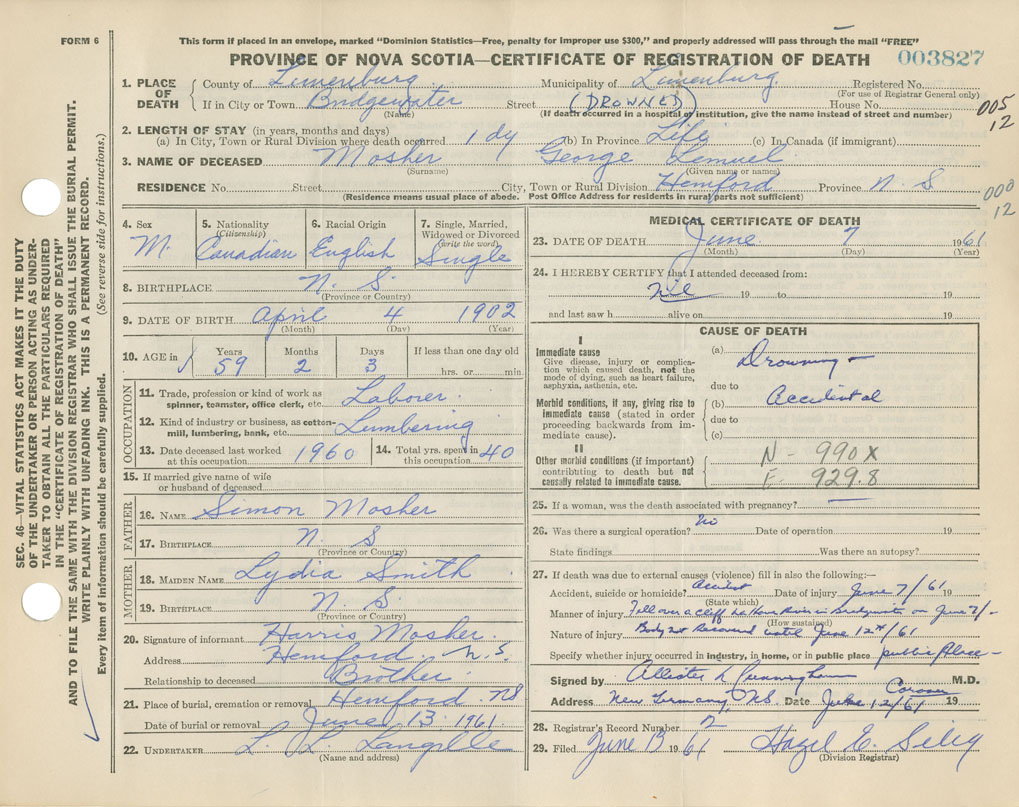 FORM 6
This form if placed in an envelope, marked "Dominion Statistics—Free, penalty for improper use $300," and properly addressed will pass through the mail "FREE"
PROVINCE OF NOVA SCOTIA—CERTIFICATE OF REGISTRATION OF DEATH 003827
1. PLACE OF DEATH
County of Lunenburg Municipality of Lunenburg Registered No.
(For use of Registrar General only)
If in City or Town Bridgewater Street (DROWNED) House No.
(Name) (If death occurred in a hospital or institution, give the name instead of street and number)
005
12
2. LENGTH OF STAY (in years, months and days)
(a) In City, Town or Rural Division where death occurred 1 dy (b) In Province Life (c) In Canada (if immigrant)
3. NAME OF DECEASED Mosher George Lemuel
(Surname) (Given name or names)
RESIDENCE No. Street City, Town or Rural Division Hemford Province N. S
(Residence means usual place of abode. Post Office Address for residents in rural parts not sufficient)
000
12
4. Sex M.
5. Nationality (Citizenship) Canadian
6. Racial Origin English
7. Single, Married, Widowed or Divorced (write the word) Single
8. BIRTHPLACE N. S.
(Province or Country)
9. DATE OF BIRTH April 4 1902
(Month) (Day) (Year)
10. AGE in Years 59 Months 2 Days 3 If less than one day old hrs. or min.
OCCUPATION
11. Trade, profession or kind of work as spinner, teamster, office clerk, etc. Laborer.
12. Kind of industry or business, as cotton-mill, lumbering, bank, etc. Lumbering
13. Date deceased last worked at this occupation 1960 14. Total yrs. spent in this occupation 40
15. If married give name of wife or husband of deceased
FATHER
16. NAME Simon Mosher
17. BIRTHPLACE N. S
(Province or Country)
MOTHER
18. MAIDEN NAME Lydia Smith
19. BIRTHPLACE N. S.
(Province or Country)
20. Signature of informant Harris Mosher.
Address Hemford. N. S.
Relationship to deceased Brother
21. Place of burial, cremation or removal Hemford. NS
Date of burial or removal June 13. 1961
22. UNDERTAKER L. L. Langille
(Name and address)
MEDICAL CERTIFICATE OF DEATH
23. DATE OF DEATH June 7 1961
(Month) (Day) (Year)
24. I HEREBY CERTIFY that I attended deceased from:
Nil 19 to 19
and last saw h alive on 19
CAUSE OF DEATH
I
Immediate cause
Give disease, injury or complication which caused death, not the mode of dying, such as heart failure, asphyxia, asthenia, etc.
(a) Drowning
due to
Morbid conditions, if any, giving rise to immediate cause (stated in order proceeding backwards from immediate cause).
(b) Accidental
due to
(c)
II
Other morbid conditions (if important) contributing to death but not causally related to immediate cause.
N - 990X
E - 929.8
25. If a woman, was the death associated with pregnancy?
26. Was there a surgical operation? No Date of operation 19
State findings Was there an autopsy?
27. If death was due to external causes (violence) fill in also the following:—
Accident, suicide or homicide? Accident Date of injury June 7/61 19
(State which)
Manner of injury Fell over a cliff La Have River in Bridgewater on June 7/-
(How sustained)
Nature of injury Body not Recovered until June 12th/61
Specify whether injury occurred in industry, in home, or in public place public place -
Signed by Allister Cunningham M.D.
Coroner
Address New Germany, NS. Date June 12/61 19
28. Registrar's Record Number 2
29. Filed June 13 1961 Hazel E. Selig
(Division Registrar)
SEC. 46—VITAL STATISTICS ACT MAKES IT THE DUTY
OF THE UNDERTAKER OR PERSON ACTING AS UNDER-
TAKER TO OBTAIN ALL THE PARTICULARS REQUIRED
IN THE "CERTIFICATE OF REGISTRATION OF DEATH"
AND TO FILE THE SAME WITH THE DIVISION REGISTRAR WHO SHALL ISSUE THE BURIAL PERMIT.
WRITE PLAINLY WITH UNFADING INK. THIS IS A PERMANENT RECORD.
Every item of information should be carefully supplied. (See reverse side for instructions.)